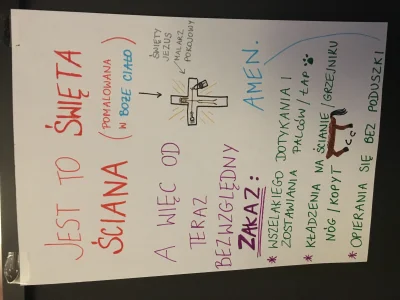 JEST TO ŚWIĘTA
ŚCIANA (POMALOWANA
W BOŻE CIAŁO)
ŚWIĘTY
JEZUS
MALARZ
POKOJOWY
A WIĘC OD
TERAZ
BEZWZGLĘDNY
ZAKAZ:
AMEN.
* WSZELAKIEGO DOTYKANIA I
ZOSTAWIANIA PALCÓW / ŁAP
* KŁADZENIA NA ŚCIANIE/GRZEJNIKU
NÓG / KOPYT
* OPIERANIA SIĘ BEZ PODUSZKI